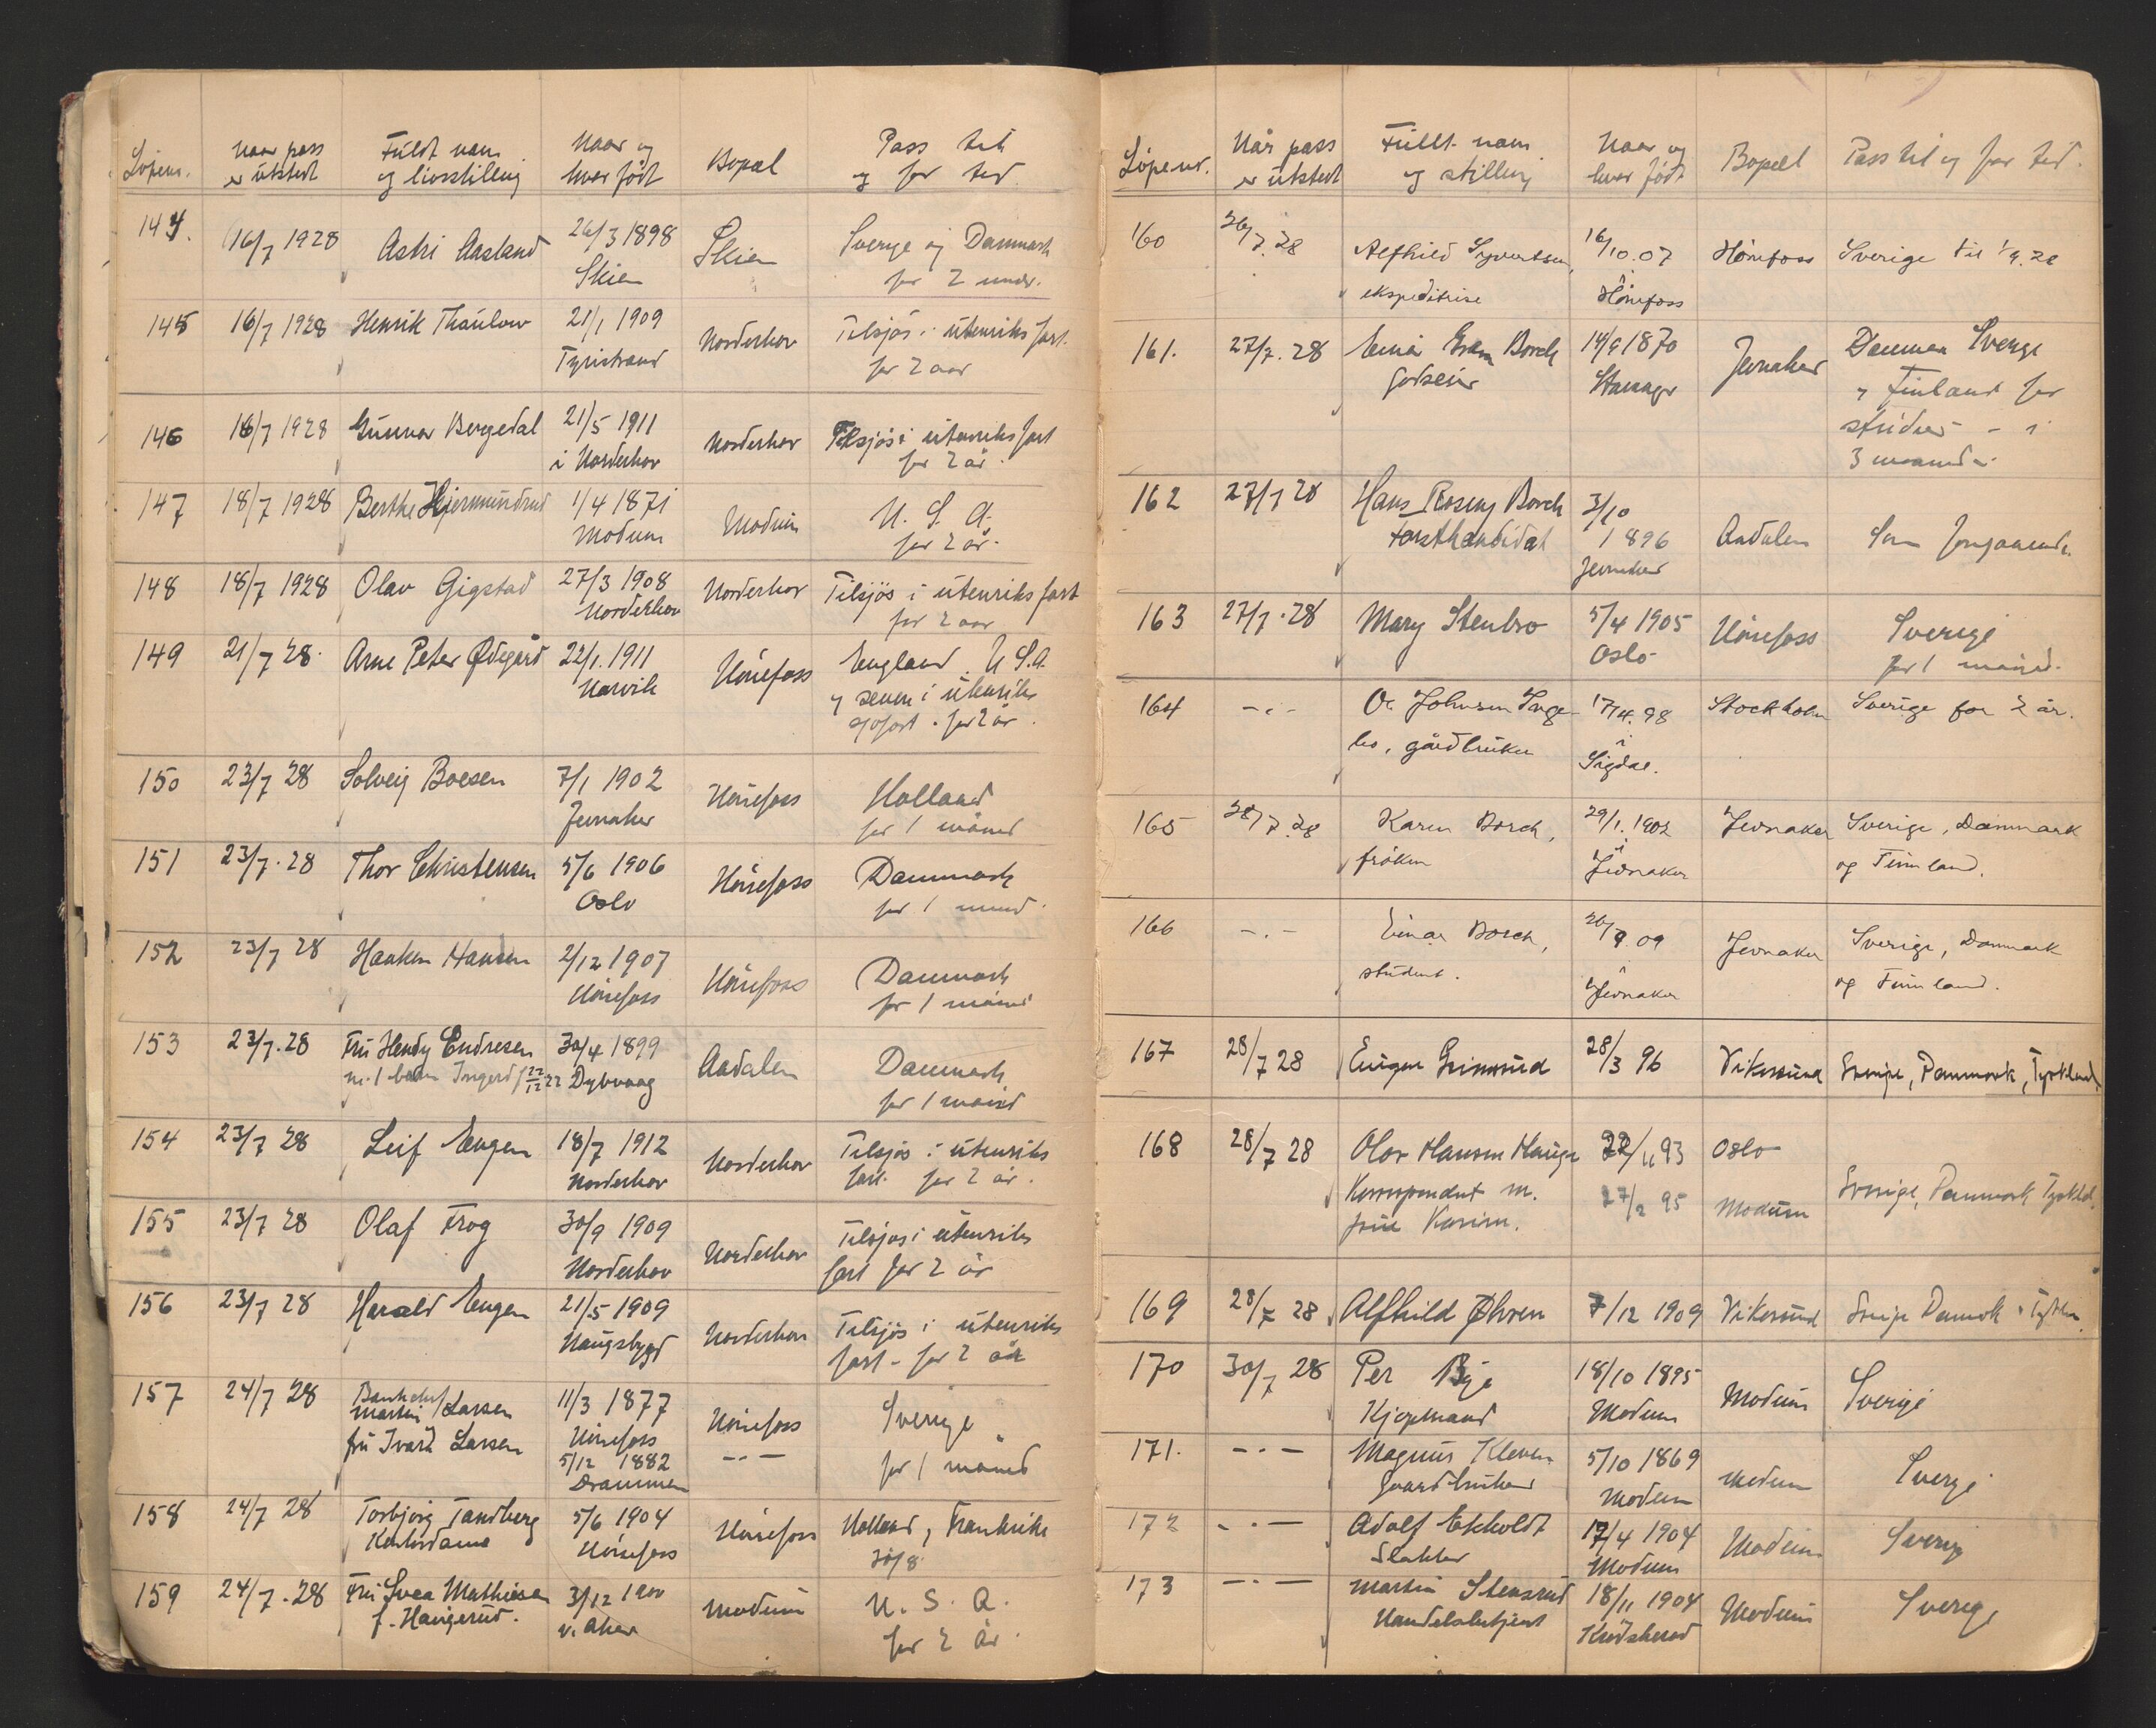 Løpenr. Naar pass er utstedt Fuldt navn og livsstilling Naar og hvor født Bopæl Pass til og for tid
144. 16/7 1928 Astri Aasland 26/3 1898 Skien Skien Sverge og Danmark for 2 mndr.
145 16/7 1928 Henrik Thaulow 21/1 1909 Tyristrand Norderhov Tilsjøs i utenriks fart. for 2 aar
146 16/7 1928 Gunnar Bergedal 21/5 1911 i Norderhov Norderhov Tilsjøs i utenriks fart for 2 år.
147 18/7 1928 Berthe Hjermundrud 1/4 1871 Modum Modum U. S. A. for 2 år.
148 18/7 1928 Olav Gigstad 27/3 1908 Norderhov Norderhov Tilsjøs i utenriks fart for 2 aar
149 21/7 28. Arne Peter Ødegård 22/1. 1911 Narvik Hönefoss England. U.S.A. og senere i utenriks sjøfart. for 2 år.
150 23/7 28 Solveig Boesen 7/1 1902 Jevnaker Hönefoss Holland for 1 måned
151 23/7.28 Thor Christensen 5/6 1906 Oslo Hönefoss Danmark for 1 mnd.
152 23/7 28 Haaken Hansen 2/12 1907 Hönefoss Hönefoss Danmark for 1 måned
153 23/7.28 Fru Hendy Endresen m. 1 barn Ingerd f 22/12 22 30/4 1899 Dybvaag Aadalen Danmark for 1 måned
154 23/7 28 Leif Engen 18/7 1912 Norderhov Norderhov Tilsjøs i utenriks fart. for 2 år.
155 23/7 28 Olaf Frog 30/9 1909 Norderhov Norderhov Tilsjøs i utenriks fart for 2 år
156 23/7 28 Harald Engen 21/5 1909 Haugsbygd Norderhov Tilsjøs i utenriks fart - for 2 år
157 24/7 28 Bankchef Martin Larsen fru Ivara Larsen 11/3 1877 Hönefoss 5/12 1882 Drammen Hönefoss -·- Sverige for 1 måned
158 24/7 28 Torbjørg Tandberg Kontordame 5/6 1904 Hönefoss Hönefoss Holland, Frankrike 30/8.
159 24/7.28 Fru Svea Mathiesen f. Haugerud. 3/12 1900 v. Aker Modum U. S. A. for 2 år.
Löpenr. Når pass er utstedt Fullt navn og stilling Naar og hvor født Bopæl Pass til og for tid.
160 26/7.28 Alfhild Syvertsen, ekspeditrise 16/10.07 Hönefoss Hönefoss Sverige til 1/9.28
161. 27/7.28 Einar Gram Borch godseier 14/9 1870 Stavanger Jevnaker Danmark Sverge og Finland for studier - i 3 maaneder
162 27/7 28 Hans Rosing Borch Forstkandidat 3/10 1896 Jevnaker Aadalen Som foregaaende
163 27/7.28 Mary Stenbro 5/4 1905 Oslo Hönefoss Sverige for 1 måned.
164 -·- Johnsen gårdbruker 17/4.98 i Sigdal. Stockholm Sverige for 2 år.
165 28/7.28 Karen Borch, frøken 29/1.1902 i Jevnaker Jevnaker Sverige, Danmark og Finnland.
166 -·- Einar Borch, student. 26/9.09 i Jevnaker Jevnaker Sverige, Danmark og Finnland.
167 28/7 28 Eugen Grimsrud 28/3 96 Vikersund Sverige, Danmark, Tyskland
168 28/7 28 Olav Hansen Hauge Korrespondent m. frue Karin. 22/11 93 27/2 95 Oslo Modum Sverige, Danmark, Tyskld.
169 28/7 28 Alfhild Øhren 7/12 1909 Vikersund Sverige Danmark Tyskl.
170 30/7 28 Per Bye Kjøpmand 18/10 1895 Modum Modum Sverige
171. -·- Magnus Kleven Gaardbruker 5/10 1869 Modum Modum Sverge
172 -·- Adolf Ekholdt Slakter 17/4 1904 Modum Modum Sverig
173 -·- Martin Stensrud Handelsbetjent 18/11 1904 Krødsherad Modum Sverige